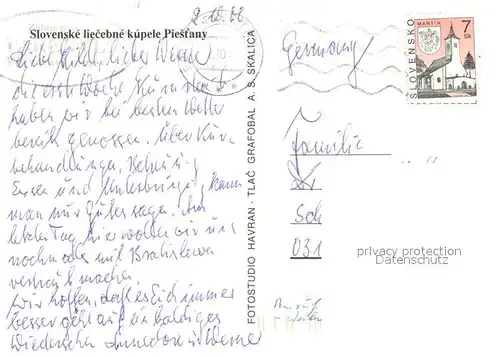 2.10.
Slovenské liečebné kúpele Piešťany
Liebe Hilde, lieber Werner
die erste Woche Kur
haben wir bei bestem Wetter
bereits genossen. Über Kur-
behandlungen,
Essen und Unterbringung kann
man nur Gutes sagen. Am
letzten Tag hier wollen wir uns
noch mit Bratislava
vertraut machen.
Wir hoffen, daß es Dich immer
besser geht auf ein baldiges
Wiedersehen Annedore u Werner
FOTOSTUDIO HAVRAN - TLAČ GRAFOBAL A. S. SKALICA
MARTIN
7
Sk
SLOVENSKO
Germany
Familie
Sch
031
privacy protection
Datenschutz